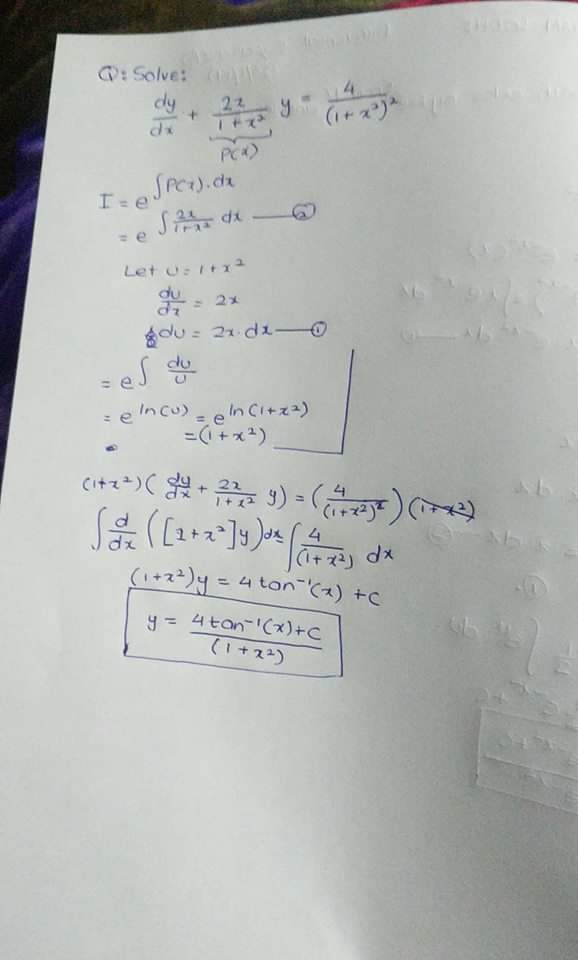 Q: Solve:
dy/dx + 2x/(1+x²) y = 4/(1+x²)²
P(x)
I = e^∫P(x).dx
= e^∫2x/(1+x²) dx —②
Let U = 1+x²
du/dx = 2x
du = 2x.dx —①
= e^∫du/U
= e^ln(U) = e^ln(1+x²)
= (1+x²)
(1+x²)(dy/dx + 2x/(1+x²) y) = (4/(1+x²)²)(1+x²)
∫d/dx([1+x²]y)dx = ∫4/(1+x²) dx
(1+x²)y = 4 tan⁻¹(x) + C
y = (4 tan⁻¹(x)+C)/(1+x²)